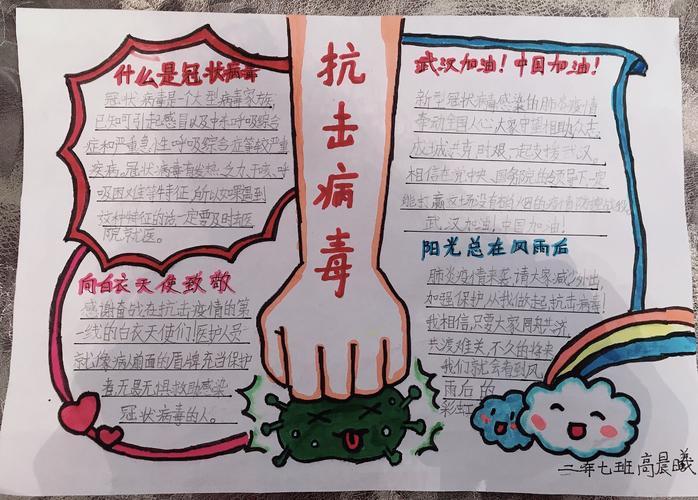 抗击病毒
什么是冠状病毒
冠状病毒是一个大型病毒家族,
已知可引起感冒以及中东呼吸综合
症和严重急性呼吸综合症等较严重
疾病。冠状病毒有发热、乏力、干咳、呼
吸困难等特征,所以如果遇到
这种特征的话一定要及时去医
院就医。
向白衣天使致敬
感谢奋战在抗击疫情的第
一线的白衣天使们!医护人员
就像病人前面的盾牌,充当保护
者,无畏无惧救助感染
冠状病毒的人。
武汉加油!中国加油!
新型冠状病毒感染的肺炎疫情
牵动全国人心,大家守望相助,众志
成城,共克时艰,一起支援武汉。
相信在党中央、国务院的领导下一定
能打赢这场没有硝烟的疫情防控战役。
武汉加油!中国加油!
阳光总在风雨后
肺炎疫情来袭,请大家减少外出,
加强保护,从我做起,抗击病毒!
我相信,只要大家同舟共济,
共渡难关,不久的将来,
我们就会看到风
雨后的
彩虹
二年七班高晨曦